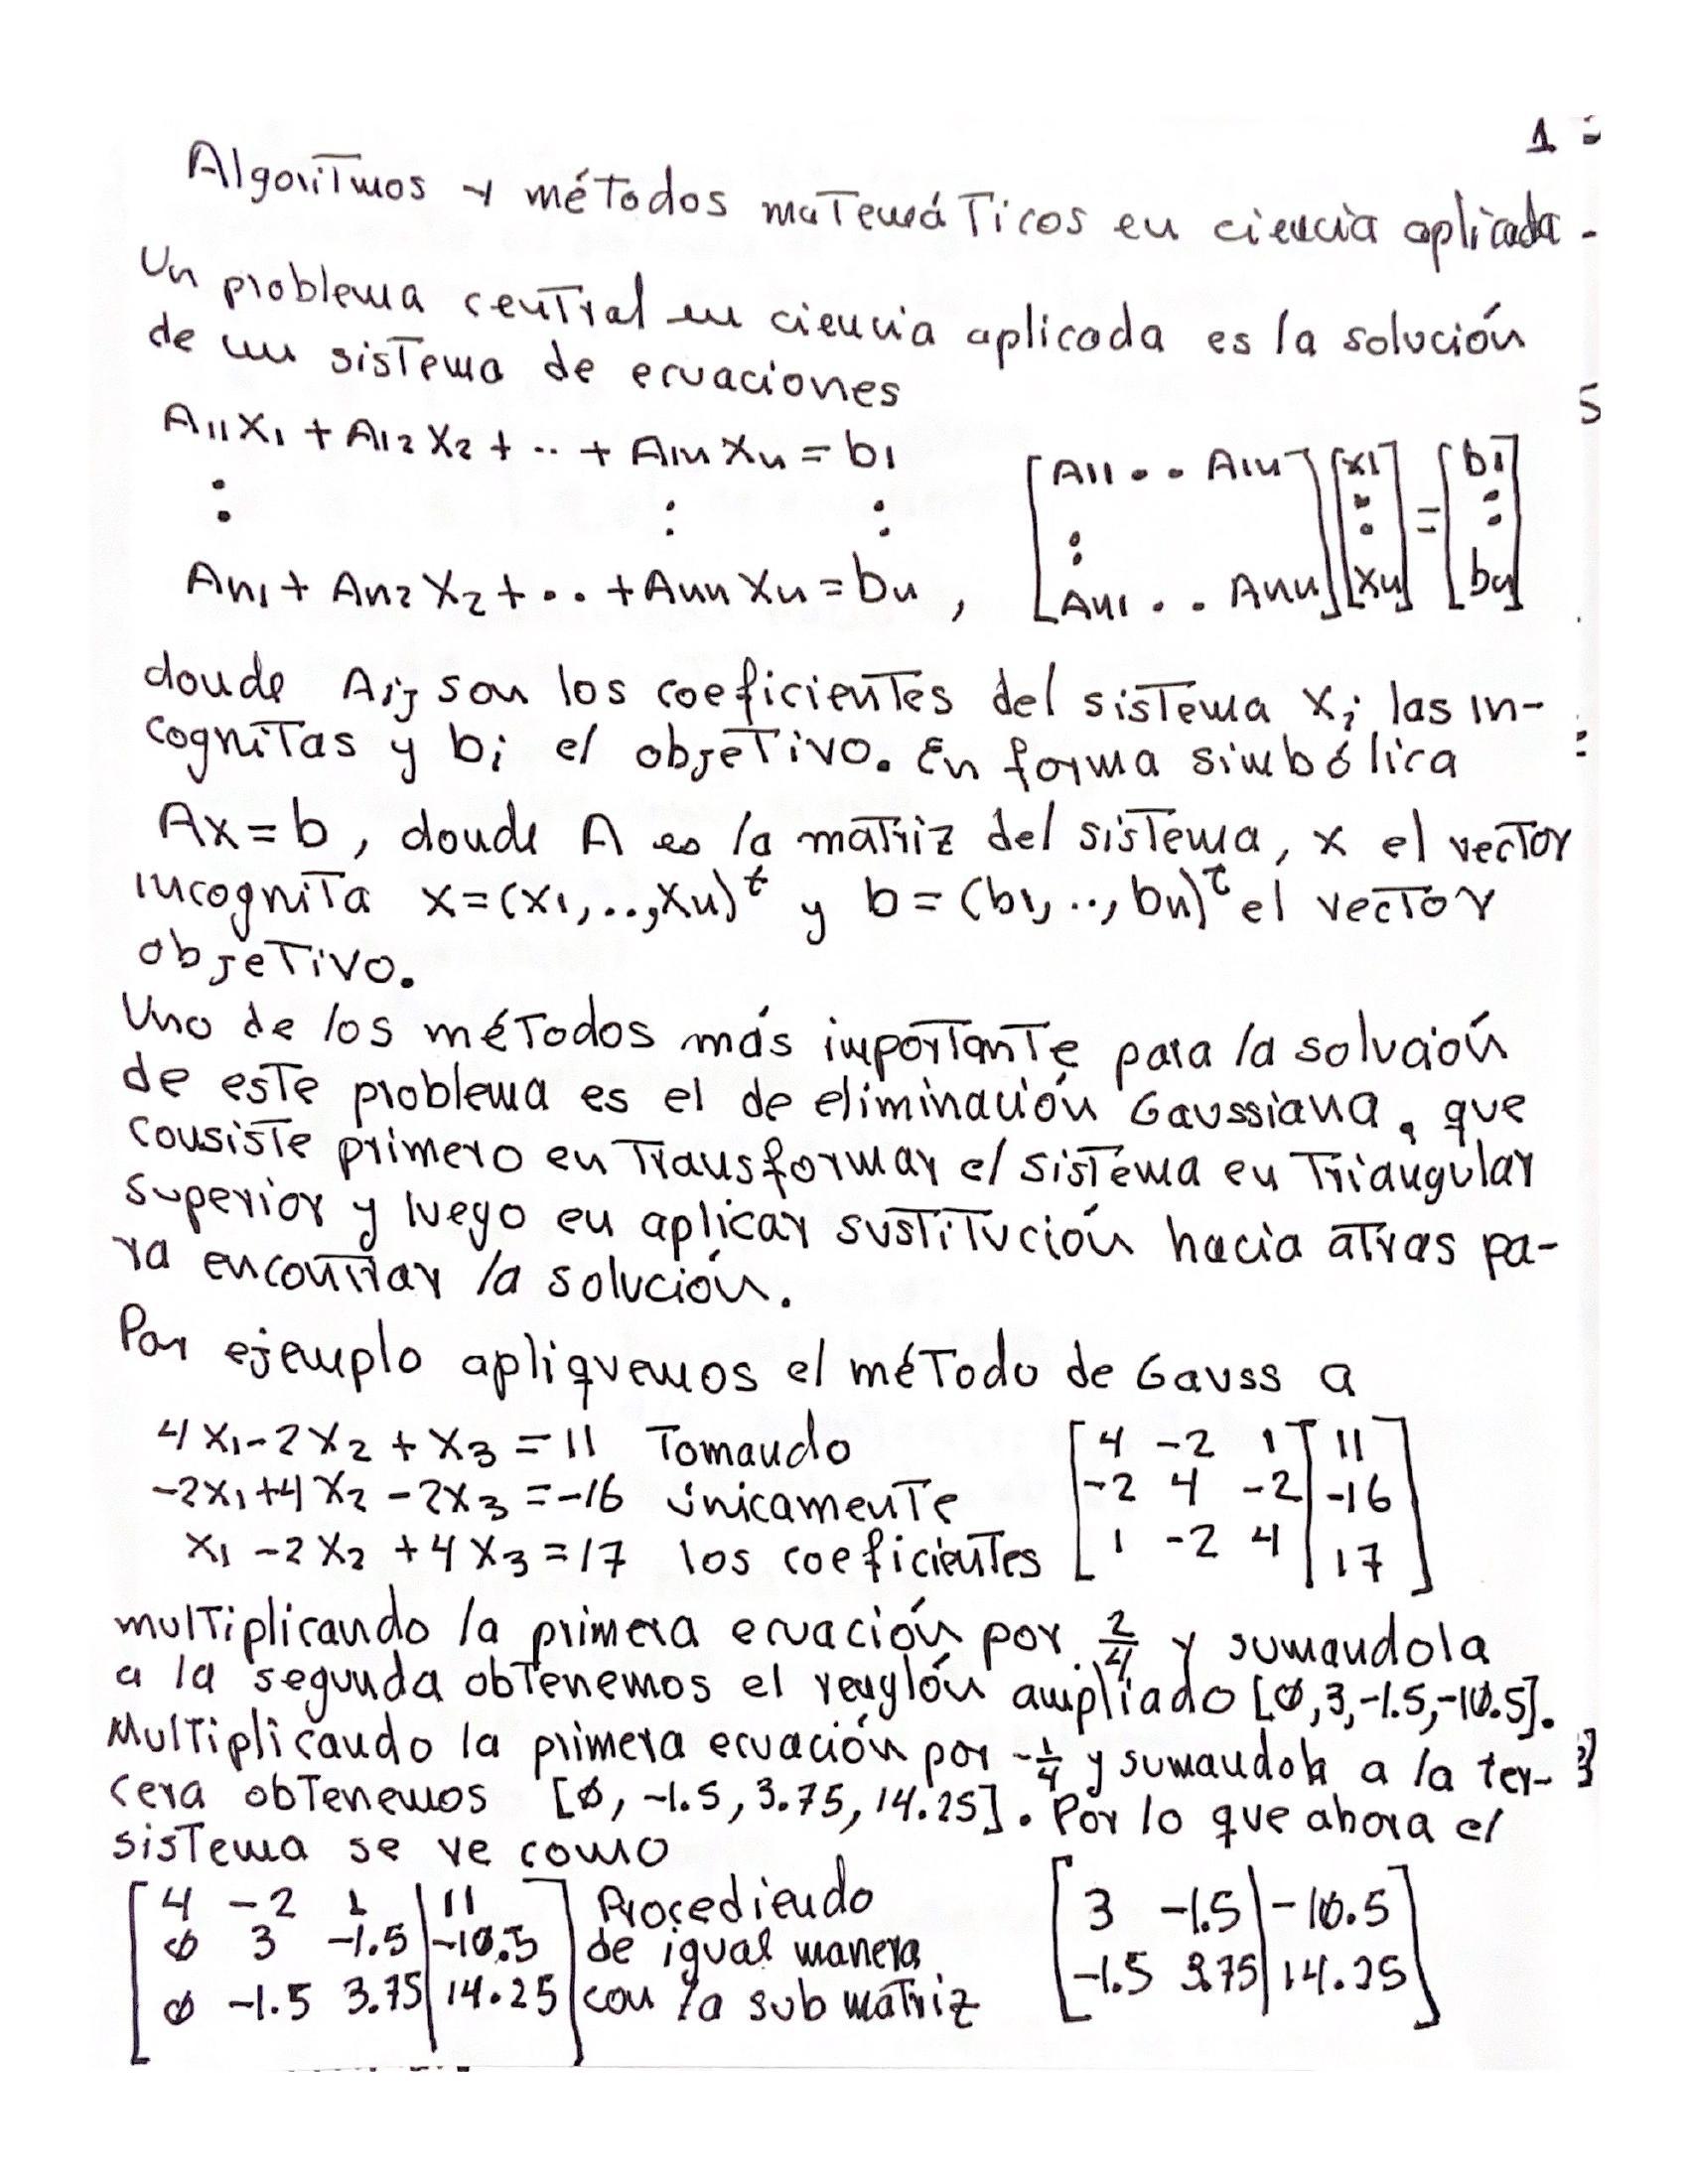 1
Algoritmos y métodos matemáticos en ciencia aplicada.
Un problema central en ciencia aplicada es la solución
de un sistema de ecuaciones
A11X1 + A12X2 + .. + A1nXn = b1
⋮ ⋮ ⋮
An1 + An2X2 + ... + AnnXn = bn ,
[A11 .. A1n] [x1] = [b1]
⋮ ⋮ ⋮
[An1 .. Ann] [xn] [bn]
donde Aij son los coeficientes del sistema xi las in-
cognitas y bi el objetivo. En forma simbólica
Ax=b, donde A es la matriz del sistema, x el vector
incognita x=(x1,..,xn)ᵗ y b=(b1,..,bn)ᵗ el vector
objetivo.
Uno de los métodos más importante para la solución
de este problema es el de eliminación Gaussiana, que
consiste primero en transformar el sistema en triangular
superior y luego en aplicar sustitución hacia atras pa-
ra encontrar la solución.
Por ejemplo apliquemos el método de Gauss a
4x1-2x2+x3=11 Tomando [4 -2 1 | 11]
-2x1+4x2-2x3=-16 únicamente [-2 4 -2 | -16]
x1-2x2+4x3=17 los coeficientes [1 -2 4 | 17]
multiplicando la primera ecuación por 2/4 y sumandola
a la segunda obtenemos el renglón ampliado [0,3,-1.5,-10.5].
Multiplicando la primera ecuación por -1/4 y sumandola a la ter-
cera obtenemos [0, -1.5, 3.75, 14.25]. Por lo que ahora el
sistema se ve como
[4 -2 1 | 11] Procediendo [3 -1.5 | -10.5]
[0 3 -1.5 | -10.5] de igual manera
[0 -1.5 3.75 | 14.25] con la submatriz [-1.5 3.75 | 14.25]